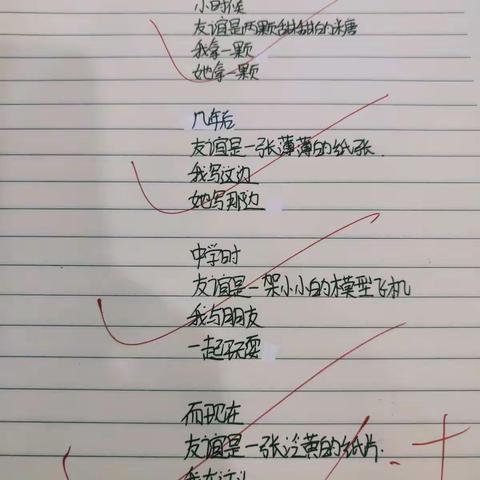 小时候
友谊是两颗甜甜的米唐
我拿一颗
她拿一颗
几年后
友谊是一张薄薄的纸张.
我写这边
她写那边
中学时
友谊是一架小小的模型飞机
我与朋友
一起玩耍
而现在
友谊是一张泛黄的纸片.
我在这头